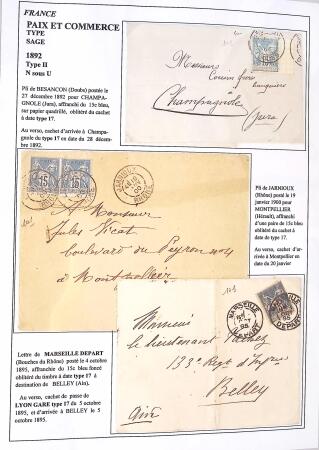 FRANCE
PAIX ET COMMERCE
TYPE
SAGE
1892
Type II
N sous U
Pli de BESANÇON (Doubs) postée le
27 décembre 1892 pour CHAMPA-
GNOLE (Jura), affranchi du 15c bleu,
sur papier quadrillé, oblitéré du cachet
à date type 17.
Au verso, cachet d'arrivée à Champa-
gnole du type 17 en date du 28 décem-
bre 1892.
Messieurs
Cousin frères
banquiers
Champagnole
(Jura)
15
15
JARNIOUX
RHONE
A Monsieur
Jules Vicat
boulevard du Peyrou n° 4
à Montpellier
Pli de JARNIOUX
(Rhône) posté le 19
janvier 1900 pour
MONTPELLIER
(Hérault), affranchi
d'une paire de 15c bleu
oblitérés du cachet à
date de type 17.
Au verso, cachet d'ar-
rivée à Montpellier en
date du 20 janvier
Lettre de MARSEILLE DEPART
(Bouches du Rhône) posté le 4 octobre
1895, affranchie du 15c bleu foncé
oblitéré du timbre à date type 17 à
destination de BELLEY (Ain).
Au verso, cachet de passe de
LYON GARE type 17 du 5 octobre
1895, et d'arrivée à BELLEY le 5
octobre 1895.
MARSEILLE
DEPART
95
MARSEILLE
DEPART
95
Monsieur
le lieutenant
133e Regt d'Infrie
Belley
Ain